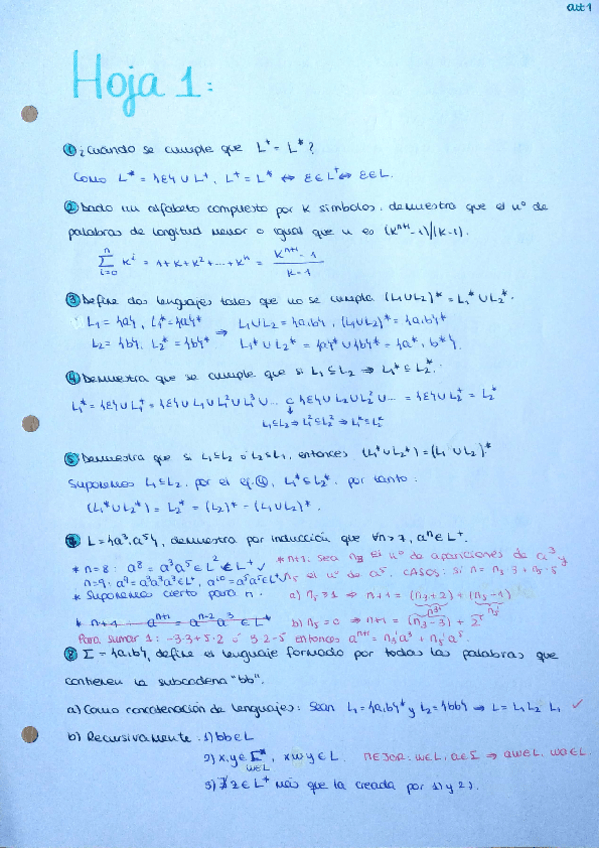 aut 1
Hoja 1:
① ¿Cuándo se cumple que L⁺ = L*?
Como L* = {ε} ∪ L⁺, L⁺ = L* ⇔ ε∈L⁺ ⇔ ε∈L.
② Dado un alfabeto compuesto por K símbolos, demuestra que el nº de
palabras de longitud menor o igual que n es (kⁿ⁺¹-1)/(k-1).
∑ᵢ₌₀ⁿ kⁱ = 1+k+k²+...+kⁿ = (kⁿ⁺¹-1)/(k-1)
③ Define dos lenguajes tales que no se cumpla (L₁∪L₂)* = L₁* ∪ L₂*.
L₁ = {a}, L₁* = {a}* ⇒ L₁∪L₂ = {a,b}, (L₁∪L₂)* = {a,b}*
L₂ = {b}, L₂* = {b}* L₁* ∪ L₂* = {a}* ∪ {b}* = {a*, b*}.
④ Demuestra que se cumple que si L₁ ⊆ L₂ ⇒ L₁* ⊆ L₂*.
L₁* = {ε} ∪ L₁⁺ = {ε} ∪ L₁ ∪ L₁² ∪ L₁³ ∪ ... ⊂ {ε} ∪ L₂ ∪ L₂² ∪ ... = {ε} ∪ L₂⁺ = L₂*
L₁⊆L₂ ⇒ L₁²⊆L₂² ⇒ L₁ᵏ⊆L₂ᵏ
⑤ Demuestra que si L₁⊆L₂ ó L₂⊆L₁, entonces (L₁*∪L₂*) = (L₁∪L₂)*
Suponemos L₁⊆L₂, por el ej. ④, L₁*⊆L₂*, por tanto:
(L₁*∪L₂*) = L₂* = (L₂)* = (L₁∪L₂)*.
L = {a³, a⁵}, demuestra por inducción que ∀n>7, aⁿ∈L⁺.
* n=8: a⁸ = a³a⁵ ∈ L² ∈ L⁺ ✓ * n+1: Sea n₃ el nº de apariciones de a³ y
n=9: a⁹ = a³a³a³∈L⁺, a¹⁰ = a⁵a⁵∈L⁺ n₅ el nº de a⁵. CASOS: si n = n₃·3 + n₅·5
* Suponemos cierto para n. a) n₅≥1 ⇒ n+1 = (n₃+2) + (n₅-1)
* n+1 aⁿ⁺¹ = aⁿ⁻² a³ ∈ L⁺ b) n₅=0 ⇒ n+1 = (n₃-3) + 2
Para sumar 1: -3·3+5·2 ó 3·2-5 entonces aⁿ⁺¹ = n₃'a³ + n₅'a⁵.
⑧ Σ = {a,b}, define el lenguaje formado por todas las palabras que
contienen la subcadena "bb".
a) Como concatenación de lenguajes: Sean L₁ = {a,b}* y L₂ = {bb} ⇒ L = L₁ L₂ L₁ ✓
b) Recursivamente: 1) bb∈L
2) x,y∈Σ*, w∈L, xwy∈L. MEJOR: w∈L, a∈Σ ⇒ aw∈L, wa∈L.
3) ∄ z∈L⁺ más que la creada por 1) y 2).